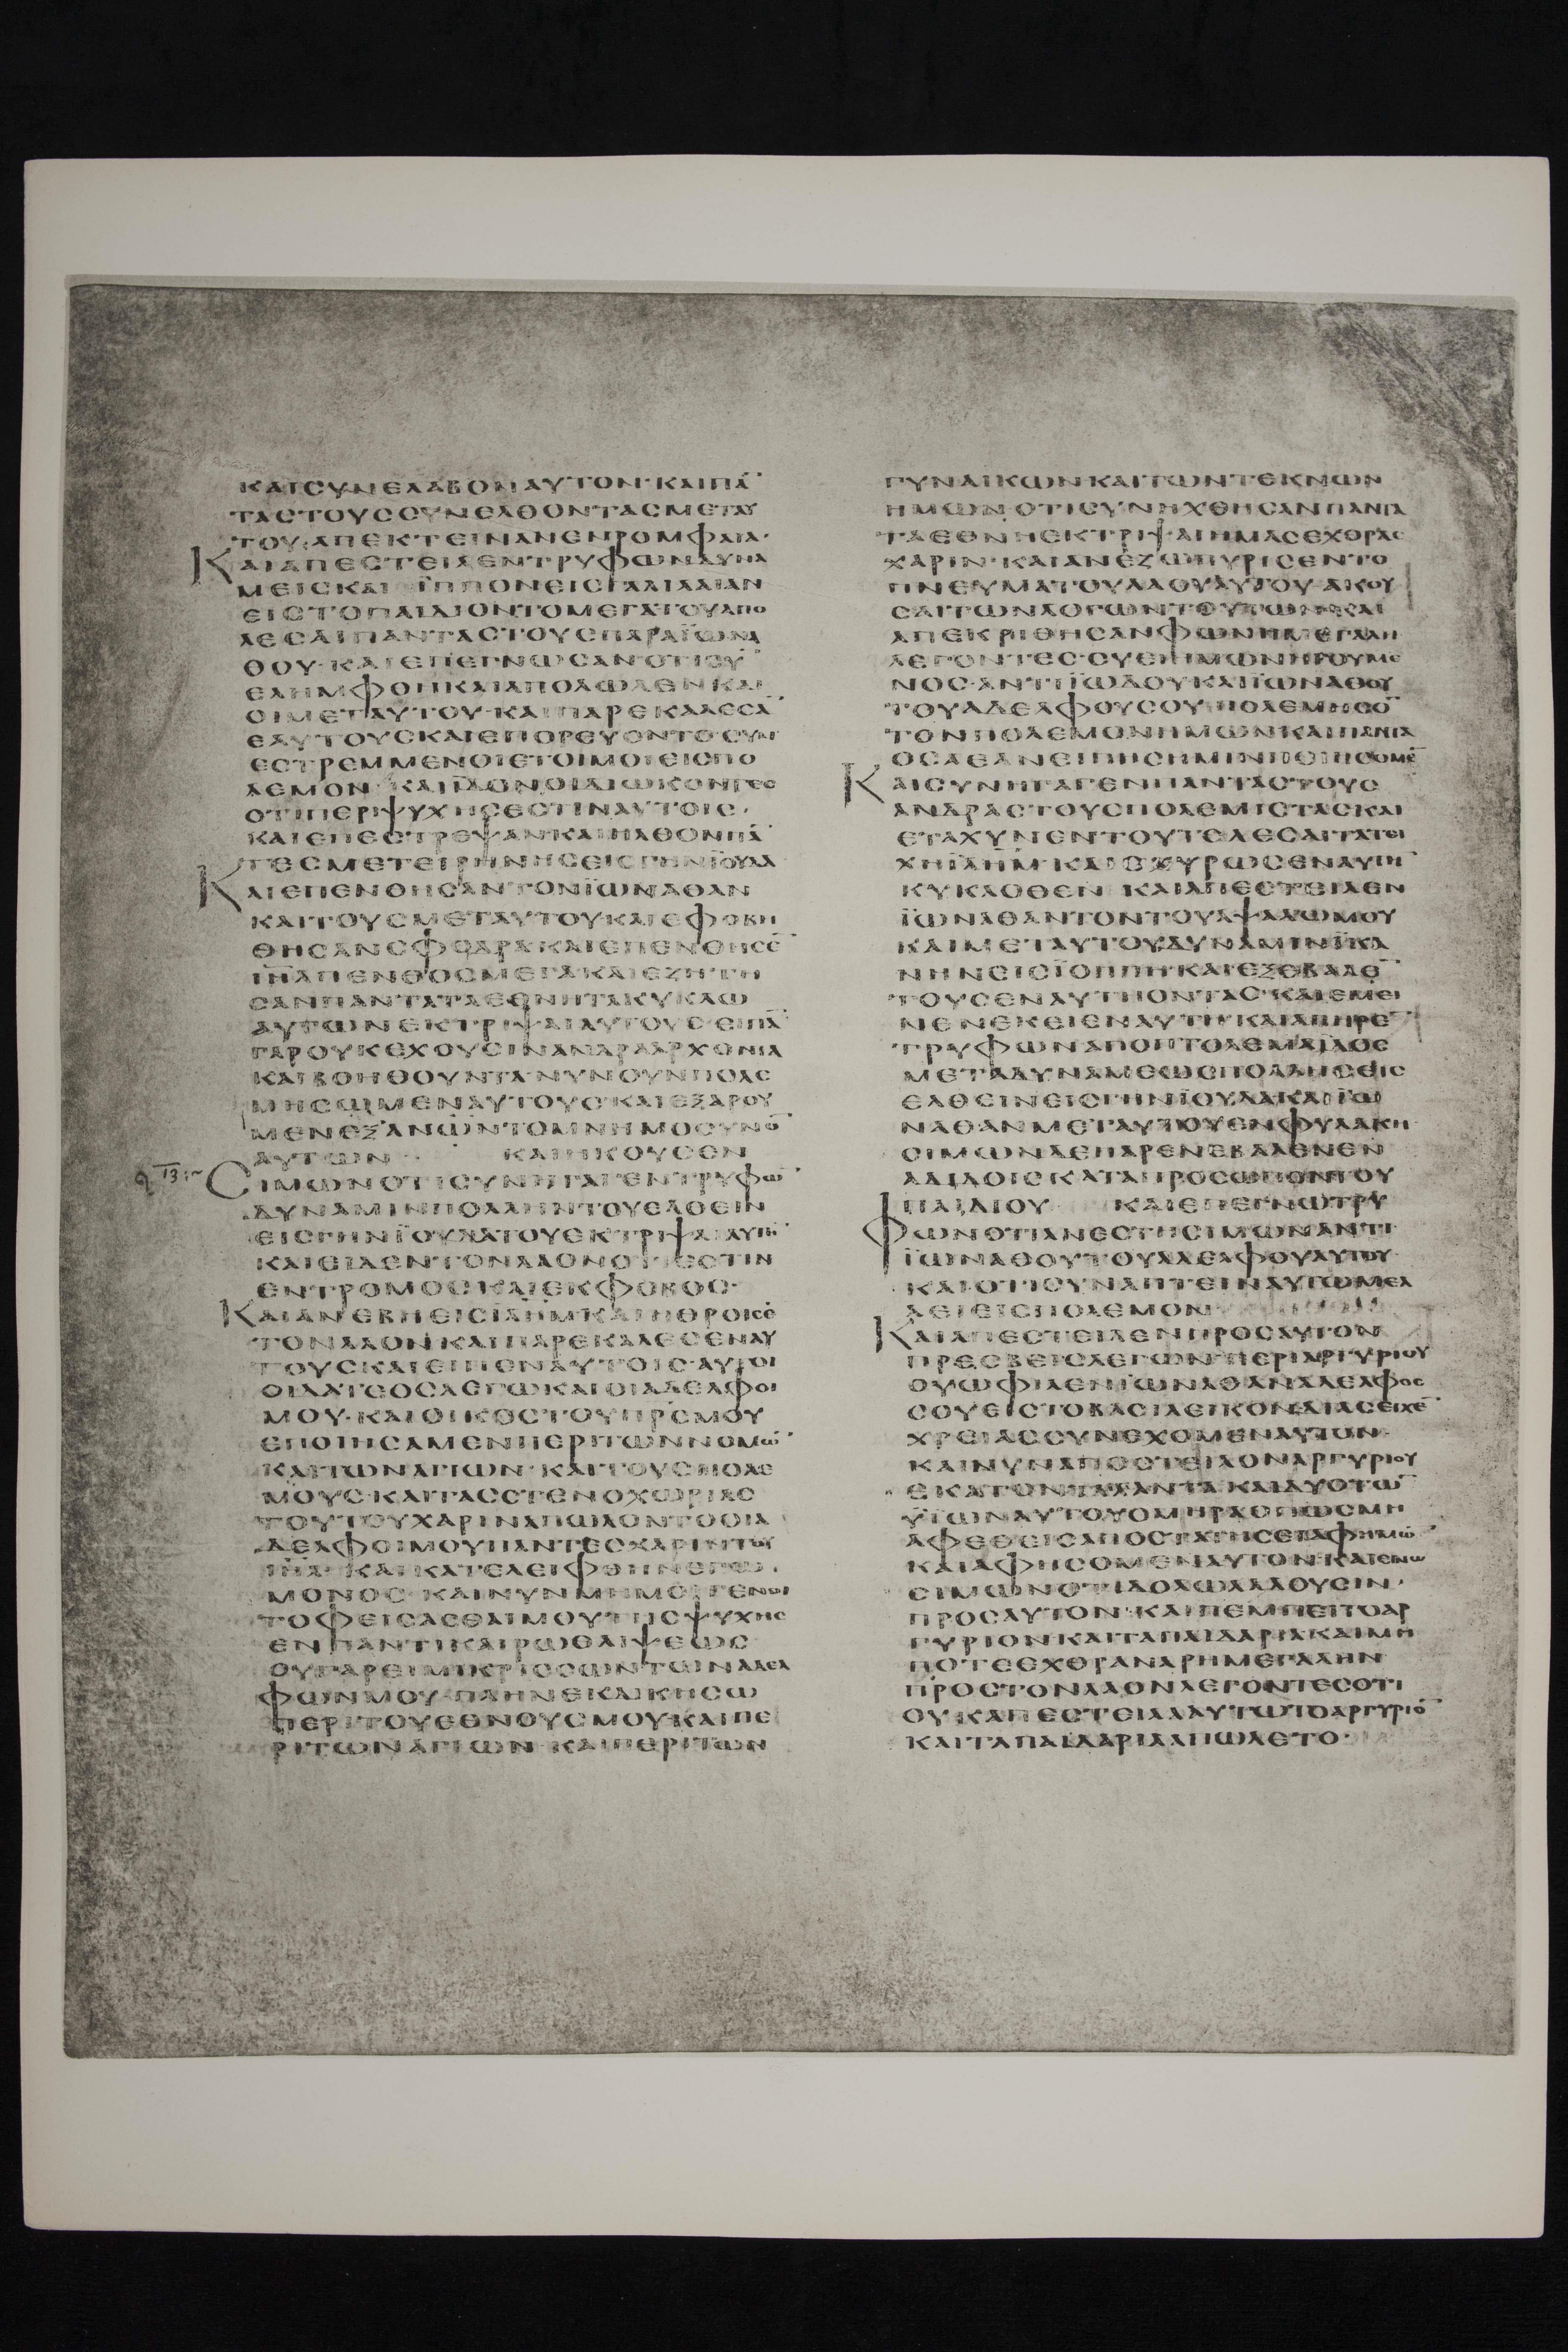 ΚΑΙΣΥΝΕΛΑΒΟΝΑΥΤΟΝ·ΚΑΙΠᾹ
ΤΑΣΤΟΥΣΣΥΝΕΛΘΟΝΤΑΣΜΕΤΑΥ
ΤΟΥ·ΑΠΕΚΤΕΙΝΑΝΕΝΡΟΜΦΑΙΑ·
ΚΑΙΑΠΕΣΤΕΙΛΕΝΤΡΥΦΩΝΔΥΝΑ
ΜΕΙΣΚΑΙ ΪΠΠΟΝΕΙΣΓΑΛΙΛΑΙΑΝ
ΕΙΣΤΟΠΑΙΔΙΟΝΤΟΜΕΓΑΤΟΥΑΠΟ
ΛΕΣΑΙΠΑΝΤΑΣΤΟΥΣΠΑΡΑΪΩΝΑ
ΘΟΥ·ΚΑΙΕΠΕΓΝΩΣΑΝΟΤΙΣῩ
ΕΛΗΜΦΘΗΚΑΙΑΠΟΛΩΛΕΝΚΑΙ
ΟΙΜΕΤΑΥΤΟΥ·ΚΑΙΠΑΡΕΚΑΛΕΣᾹ
ΕΑΥΤΟΥΣΚΑΙΕΠΟΡΕΥΟΝΤΟΣΥΝ
ΕΣΤΡΕΜΜΕΝΟΙΕΤΟΙΜΟΙΕΙΣΠΟ
ΛΕΜΟΝ ΚΑΙΪΔΟΝΟΙΔΙΩΚΟΝΤΕΣ
ΟΤΙΠΕΡΙΨΥΧΗΣΕΣΤΙΝΑΥΤΟΙΣ·
ΚΑΙΕΠΕΣΤΡΕΨΑΝΚΑΙΗΛΘΟΝΠᾹ
ΤΕΣΜΕΤΕΙΡΗΝΗΣΕΙΣΓΗΝΪΟΥΔΑ
ΚΑΙΕΠΕΝΘΗΣΑΝΤΟΝΪΩΝΑΘΑΝ
ΚΑΙΤΟΥΣΜΕΤΑΥΤΟΥΚΑΙΕΦΟΒΗ
ΘΗΣΑΝΣΦΟΔΡΑΚΑΙΕΠΕΝΘΗΣΕ̄
ΙΗ̄Λ̄ΠΕΝΘΟΣΜΕΓΑ·ΚΑΙΕΖΗΤΗ
ΣΑΝΠΑΝΤΑΤΑΕΘΝΗΤΑΚΥΚΛΩ
ΑΥΤΩΝΕΚΤΡΙΨΑΙΑΥΤΟΥΣ·ΕΙΠᾹ
ΓΑΡΟΥΚΕΧΟΥΣΙΝΑΝΔΡΑΑΡΧΟΝΤΑ
ΚΑΙΒΟΗΘΟΥΝΤΑ·ΝΥΝΟΥΝΠΟΛΕ
ΜΗΣΩΜΕΝΑΥΤΟΥΣ·ΚΑΙΕΞΑΡΟΥ
ΜΕΝΕΞΑΝΩΝΤΟΜΝΗΜΟΣΥΝΟ̄
ΑΥΤΩΝ· ΚΑΙΗΚΟΥΣΕΝ
ΣΙΜΩΝΟΤΙΣΥΝΗΓΑΓΕΝΤΡΥΦΩ̄
ΔΥΝΑΜΙΝΠΟΛΛΗΝΤΟΥΕΛΘΕΙΝ
ΕΙΣΓΗΝΪΟΥΔΑΤΟΥΕΚΤΡΙΨΑΙΑΥΤΗ̄
ΚΑΙΕΙΔΕΝΤΟΝΛΑΟΝΟΤΙΕΣΤΙΝ
ΕΝΤΡΟΜΟΣΚΑΙΕΚΦΟΒΟΣ·
ΚΑΙΑΝΕΒΗΕΙΣΪΛΗΜ·ΚΑΙΗΘΡΟΙΣΕ̄
ΤΟΝΛΑΟΝΚΑΙΠΑΡΕΚΑΛΕΣΕΝΑΥ
ΤΟΥΣΚΑΙΕΙΠΕΝΑΥΤΟΙΣ·ΑΥΤΟΙ
ΟΙΔΑΤΕΟΣΑΕΓΩΚΑΙΟΙΑΔΕΛΦΟΙ
ΜΟΥ·ΚΑΙΟΙΚΟΣΤΟΥΠΡ̄Σ̄ΜΟΥ
ΕΠΟΙΗΣΑΜΕΝΠΕΡΙΤΩΝΝΟΜΩ̄
ΚΑΙΤΩΝΑΓΙΩΝ·ΚΑΙΤΟΥΣΠΟΛΕ
ΜΟΥΣ·ΚΑΙΤΑΣΣΤΕΝΟΧΩΡΙΑΣ
ΤΟΥΤΟΥΧΑΡΙΝΑΠΩΛΟΝΤΟΟΙΑ
ΔΕΛΦΟΙΜΟΥΠΑΝΤΕΣΧΑΡΙΝΤΟΥ
ΙΗ̄Λ̄·ΚΑΙΚΑΤΕΛΕΙΦΘΗΝΕΓΩ·
ΜΟΝΟΣ·ΚΑΙΝΥΝΜΗΜΟΙΓΕΝΟΙ
ΤΟΦΕΙΣΑΣΘΑΙΜΟΥΤΗΣΨΥΧΗΣ
ΕΝΠΑΝΤΙΚΑΙΡΩΘΛΙΨΕΩΣ
ΟΥΓΑΡΕΙΜΙΚΡΙΣΣΩΝΤΩΝΑΔΕΛ
ΦΩΝΜΟΥ·ΠΛΗΝΕΚΔΙΚΗΣΩ
ΠΕΡΙΤΟΥΕΘΝΟΥΣΜΟΥ·ΚΑΙΠΕ
ΡΙΤΩΝΑΓΙΩΝ·ΚΑΙΠΕΡΙΤΩΝ
ΓΥΝΑΙΚΩΝΚΑΙΤΩΝΤΕΚΝΩΝ
ΗΜΩΝ·ΟΤΙΣΥΝΗΧΘΗΣΑΝΠΑΝΤΑ
ΤΑΕΘΝΗΕΚΤΡΙΨΑΙΗΜΑΣΕΧΘΡΑΣ
ΧΑΡΙΝ·ΚΑΙΑΝΕΖΩΠΥΡΙΣΕΝΤΟ
ΠΝΕΥΜΑΤΟΥΛΑΟΥΑΥΤΟΥ·ΑΚΟΥ
ΣΑΙΤΩΝΛΟΓΩΝΤΟΥΤΩΝ·ΚΑΙ
ΑΠΕΚΡΙΘΗΣΑΝΦΩΝΗΜΕΓΑΛΗ
ΛΕΓΟΝΤΕΣ·ΣΥΕΙΗΜΩΝΗΓΟΥΜΕ
ΝΟΣ·ΑΝΤΙΪΟΥΔΟΥΚΑΙΪΩΝΑΘΟΥ
ΤΟΥΑΔΕΛΦΟΥΣΟΥ·ΠΟΛΕΜΗΣΟ̄
ΤΟΝΠΟΛΕΜΟΝΗΜΩΝΚΑΙΠΑΝΤΑ
ΟΣΑΕΑΝΕΙΠΗΣΗΜΙΝΠΟΙΗΣΟΜΕ̄
ΚΑΙΣΥΝΗΓΑΓΕΝΠΑΝΤΑΣΤΟΥΣ
ΑΝΔΡΑΣΤΟΥΣΠΟΛΕΜΙΣΤΑΣΚΑΙ
ΕΤΑΧΥΝΕΝΤΟΥΤΕΛΕΣΑΙΤΑΤΕΙ
ΧΗΪΛΗΜ·ΚΑΙΩΧΥΡΩΣΕΝΑΥΤΗ̄
ΚΥΚΛΟΘΕΝ ΚΑΙΑΠΕΣΤΕΙΛΕΝ
ΪΩΝΑΘΑΝΤΟΝΤΟΥΑΨΑΛΩΜΟΥ
ΚΑΙΜΕΤΑΥΤΟΥΔΥΝΑΜΙΝΪΚΑ
ΝΗΝΕΙΣΪΟΠΠΗ·ΚΑΙΕΞΕΒΑΛΕ̄
ΤΟΥΣΕΝΑΥΤΗΟΝΤΑΣ·ΚΑΙΕΜΕΙ
ΝΕΝΕΚΕΙΕΝΑΥΤΗ·ΚΑΙΑΠΗΡΕ̄
ΤΡΥΦΩΝΑΠΟΠΤΟΛΕΜΑΪΔΟΣ
ΜΕΤΑΔΥΝΑΜΕΩΣΠΟΛΛΗΣΕΙΣ
ΕΛΘΕΙΝΕΙΣΓΗΝΪΟΥΔΑΚΑΙΪΩ
ΝΑΘΑΝΜΕΤΑΥΤΟΥΕΝΦΥΛΑΚΗ
ΣΙΜΩΝΔΕΠΑΡΕΝΕΒΑΛΕΝΕΝ
ΑΔΙΔΟΙΣΚΑΤΑΠΡΟΣΩΠΟΝΤΟΥ
ΠΑΙΔΙΟΥ ΚΑΙΕΠΕΓΝΩΤΡΥ
ΦΩΝΟΤΙΑΝΕΣΤΗΣΙΜΩΝΑΝΤΙ
ΪΩΝΑΘΟΥΤΟΥΑΔΕΛΦΟΥΑΥΤΟΥ·
ΚΑΙΟΤΙΣΥΝΑΠΤΕΙΝΑΥΤΩΜΕΛ
ΛΕΙΕΙΣΠΟΛΕΜΟΝ
ΚΑΙΑΠΕΣΤΕΙΛΕΝΠΡΟΣΑΥΤΟΝ
ΠΡΕΣΒΕΙΣΛΕΓΩΝ·ΠΕΡΙΑΡΓΥΡΙΟΥ
ΟΥΩΦΙΛΕΝΪΩΝΑΘΑΝΑΔΕΛΦΟΣ
ΣΟΥΕΙΣΤΟΒΑΣΙΛΕΙΚΟΝΔΙΑΣΕΙΧΕ̄
ΧΡΕΙΑΣΣΥΝΕΧΟΜΕΝΑΥΤΟΝ·
ΚΑΙΝΥΝΑΠΟΣΤΕΙΛΟΝΑΡΓΥΡΙΟΥ
ΕΚΑΤΟΝΤΑΛΑΝΤΑΚΑΙΔΥΟΤΩ̄
ΫΙΩΝΑΥΤΟΥΟΜΗΡΑΟΠΩΣΜΗ
ΑΦΕΘΕΙΣΑΠΟΣΤΑΤΗΣΕΙΑΦΗΜΩ̄
ΚΑΙΑΦΗΣΟΜΕΝΑΥΤΟΝ·ΚΑΙΕΓΝΩ
ΣΙΜΩΝΟΤΙΔΟΛΩΛΑΛΟΥΣΙΝ·
ΠΡΟΣΑΥΤΟΝ·ΚΑΙΠΕΜΠΕΙΤΟΑΡ
ΓΥΡΙΟΝΚΑΙΤΑΠΑΙΔΑΡΙΑΚΑΙΜΗ
ΠΟΤΕΕΧΘΡΑΝΑΡΗΜΕΓΑΛΗΝ
ΠΡΟΣΤΟΝΛΑΟΝΛΕΓΟΝΤΕΣΟΤΙ
ΟΥΚΑΠΕΣΤΕΙΛΑΑΥΤΩΤΟΑΡΓΥΡΙΟ̄
ΚΑΙΤΑΠΑΙΔΑΡΙΑΑΠΩΛΕΤΟ·